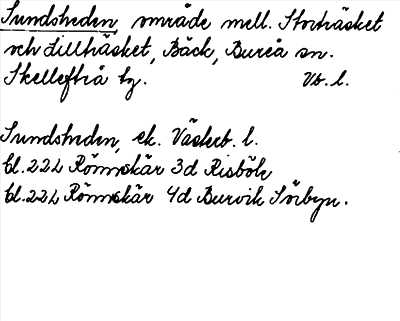 Sundsheden, område mell. Storträsket
och Lillträsket, Bäck, Bureå sn.
Skellefteå tg. Vb. l.
Sundsheden, ek. Västerb. l.
bl. 22L Rönnskär 3d Risböle
bl. 22L Rönnskär 4d Burvik Sörbyn.